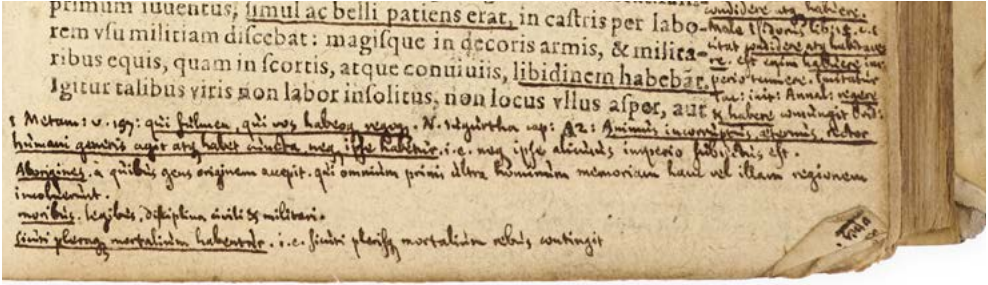 primum iuuentus, simul ac belli patiens erat, in castris per labo-
rem vsu militiam discebat: magisque in decoris armis, & milita-
ribus equis, quam in scortis, atque conuiuiis, libidinem habebāt.
Igitur talibus viris non labor insolitus, non locus vllus asper, aut
condidere atq habuere.
Male Isidorus lib:
citat condidere atq habitaue
re. est enim habuere im-
perio tenuere. Imitatur
Tac: init: Annal: regere
& habere coniungit Ovid:
1 Metam: v. 197: qui fulmen, qui vos habeoq regoq. N. Iugurtha cap: 2: Animus incorruptus, æternus, rector
humani generis agit atq habet cuncta neq ipse habetur. i.e. neq ipse alicuius imperio subiectus est.
Aborigines. a quibus gens originem accepit. qui omnium primi ultra hominum memoriam hanc vel illam regionem
incoluerunt.
moribus. legibus, disciplina civili & militari.
sicuti pleraq mortalium habentur. i.e. sicuti plerisq mortalium rebus contingit